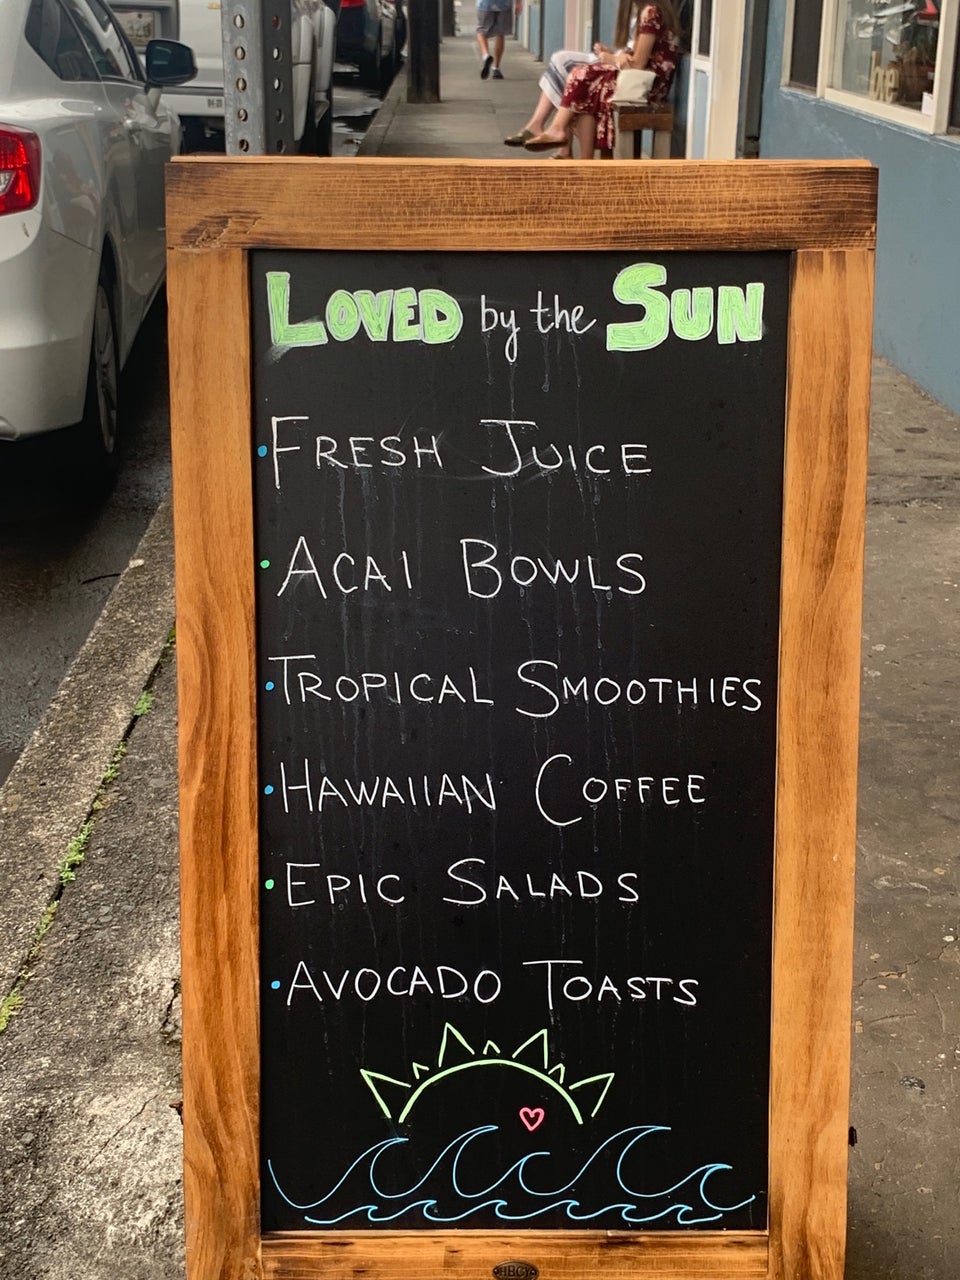 LOVED by the SUN
• FRESH JUICE
• ACAI BOWLS
• TROPICAL SMOOTHIES
• HAWAIIAN COFFEE
• EPIC SALADS
• AVOCADO TOASTS
HBCY
be